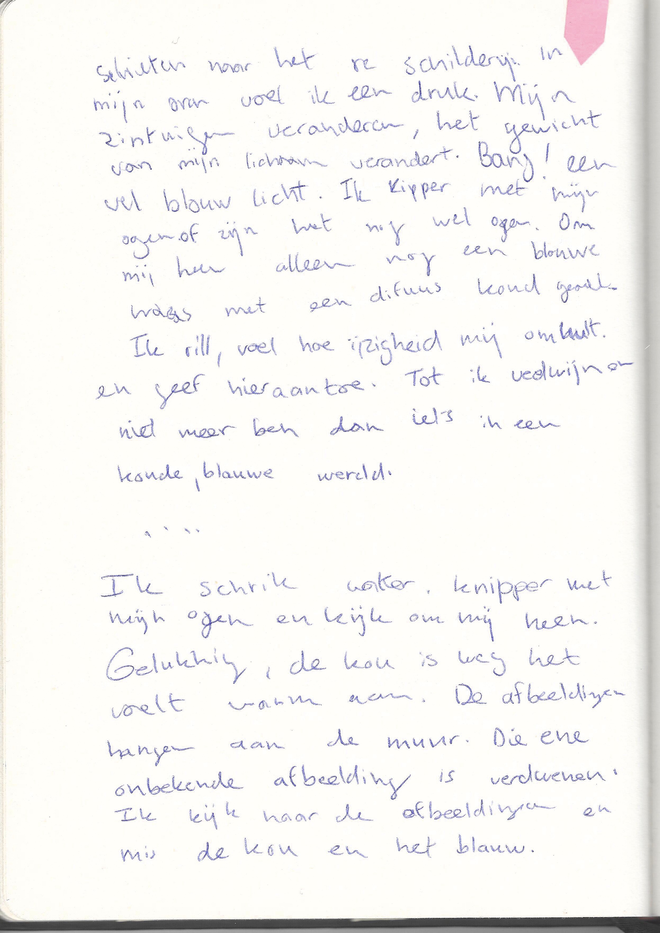 schieten naar het re schilderij. In
mijn oren voel ik een druk. Mijn
zintuigen veranderen, het gewicht
van mijn lichaam verandert. Bang! een
vel blauw licht. Ik kipper met mijn
ogen of zijn het nog wel ogen. Om
mij heen alleen nog een blauwe
waas met een difuus koud
Ik ril, voel hoe ijzigheid mij omhult.
en geef hieraan toe. Tot ik verdwijn en
niet meer ben dan iets in een
koude, blauwe wereld.
....
Ik schrik wakker. knipper met
mijn ogen en kijk om mij heen.
Gelukkig, de kou is weg het
voelt warm aan. De afbeeldingen
hangen aan de muur. Die ene
onbekende afbeelding is verdwenen.
Ik kijk naar de afbeeldingen en
mis de kou en het blauw.